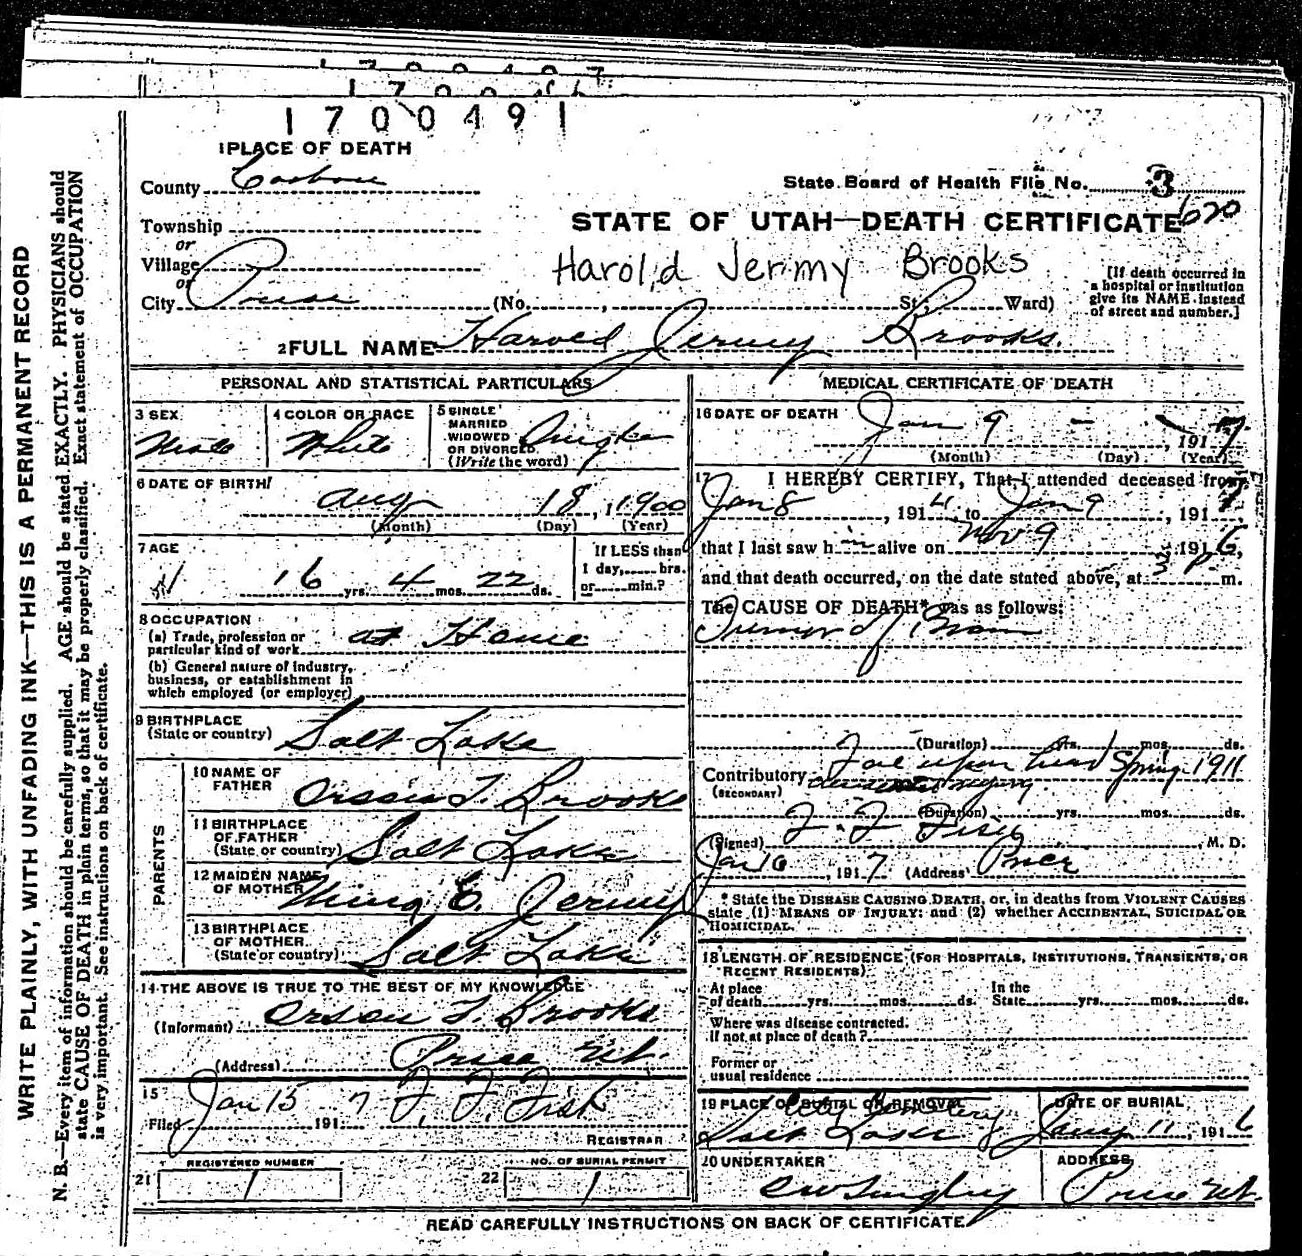 1700491
1 PLACE OF DEATH
County Carbon
State Board of Health File No. 3
620
Township
STATE OF UTAH—DEATH CERTIFICATE
or
Village
Harold Jermy Brooks
or
City Price (No. , St. Ward)
[If death occurred in
a hospital or institution
give its NAME instead
of street and number.]
2 FULL NAME Harold Jermy Brooks.
PERSONAL AND STATISTICAL PARTICULARS
3 SEX
Male
4 COLOR OR RACE
White
5 SINGLE
MARRIED
WIDOWED
OR DIVORCED
(Write the word)
Single
6 DATE OF BIRTH
Aug 18, 1900
(Month) (Day) (Year)
7 AGE
16 yrs. 4 mos. 22 ds.
If LESS than
1 day, hrs.
or min.?
8 OCCUPATION
(a) Trade, profession or
particular kind of work at Home
(b) General nature of industry,
business, or establishment in
which employed (or employer)
9 BIRTHPLACE
(State or country) Salt Lake
PARENTS
10 NAME OF
FATHER Orson T. Brooks
11 BIRTHPLACE
OF FATHER
(State or country) Salt Lake
12 MAIDEN NAME
OF MOTHER E. Jermy
13 BIRTHPLACE
OF MOTHER
(State or country) Salt Lake
14 THE ABOVE IS TRUE TO THE BEST OF MY KNOWLEDGE
(Informant) Orson T. Brooks
(Address) Price Ut.
15
Filed Jan 15 191 7 F. F. Fisk
REGISTRAR
21 REGISTERED NUMBER
1
22 NO. OF BURIAL PERMIT
1
MEDICAL CERTIFICATE OF DEATH
16 DATE OF DEATH Jan 9 - , 191 7
(Month) (Day) (Year)
17 I HEREBY CERTIFY, That I attended deceased from
Jan 8, 191 4 to Jan 9, 191 7,
that I last saw h im alive on Nov 9 191 6,
and that death occurred, on the date stated above, at 3 P. m.
The CAUSE OF DEATH* was as follows:
Tumor of Brain
(Duration) yrs. mos. ds.
Contributory Fall upon head Spring 1911
(SECONDARY)
(Duration) yrs. mos. ds.
(Signed) F. F. Fisk, M. D.
Jan 10, 191 7 (Address) Price
* State the DISEASE CAUSING DEATH, or, in deaths from VIOLENT CAUSES
state (1) MEANS OF INJURY; and (2) whether ACCIDENTAL, SUICIDAL OR
HOMICIDAL.
18 LENGTH OF RESIDENCE (FOR HOSPITALS, INSTITUTIONS, TRANSIENTS, OR
RECENT RESIDENTS)
At place
of death yrs. mos. ds.
In the
State yrs. mos. ds.
Where was disease contracted.
If not at place of death?
Former or
usual residence
19 PLACE OF BURIAL OR REMOVAL
City Cemetery
Salt Lake
DATE OF BURIAL
Jany 11, 191 6
20 UNDERTAKER
ADDRESS
Price Ut.
READ CAREFULLY INSTRUCTIONS ON BACK OF CERTIFICATE
WRITE PLAINLY, WITH UNFADING INK—THIS IS A PERMANENT RECORD
N. B.—Every item of information should be carefully supplied. AGE should be stated EXACTLY. PHYSICIANS should
state CAUSE OF DEATH in plain terms, so that it may be properly classified. Exact statement of OCCUPATION
is very important. See instructions on back of certificate.